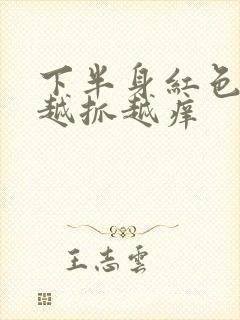 下半身紅色
越抓越痒
王志雲